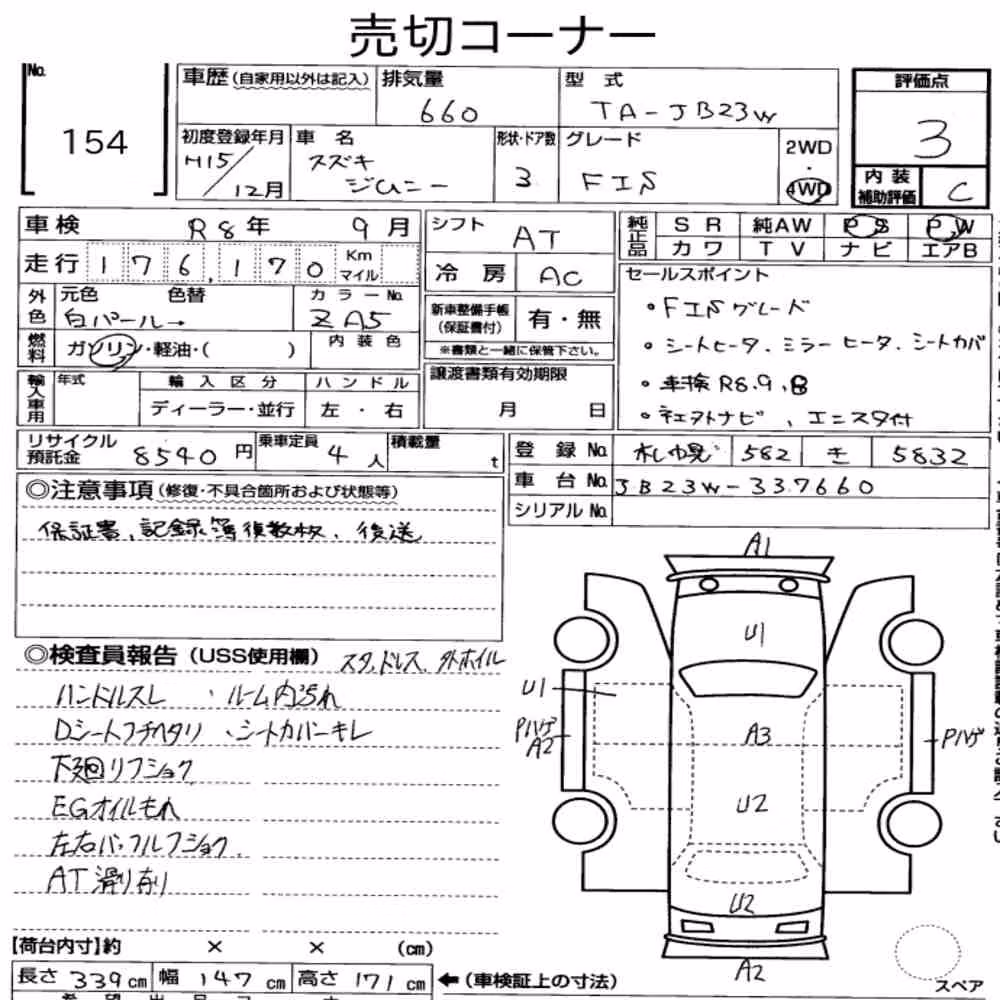 売切コーナー
No.
154
車歴(自家用以外は記入)
排気量
660
型 式
TA-JB23W
評価点
3
内装補助評価
C
初度登録年月
H15/12月
車 名
スズキ
ジムニー
形状・ドア数
3
グレード
FISフ
2WD
・
4WD
車検 R8年 9月
走行 176,170 Km マイル
外色
元色 色替
白パール→
カラーNo.
ZA5
燃料
ガソリン・軽油・( )
内装色
輸入車用
年式
輸入区分
ディーラー・並行
ハンドル
左・右
シフト AT
冷房 AC
新車整備手帳(保証書付) 有・無
※書類と一緒に保管下さい。
譲渡書類有効期限
月 日
純正品
SR 純AW PS PW
カワ TV ナビ エアB
セールスポイント
・FISグレード
・シートヒータ、ミラーヒータ、シートカバ
・車検R8.9.8
・社外ナビ、エンスタ付
リサイクル預託金 8540円
乗車定員 4人
積載量 t
登録No. 札幌 582 き 5832
車台No. JB23W-337660
シリアルNo.
◎注意事項(修復・不具合箇所および状態等)
保証書、記録簿複数枚、後送
◎検査員報告(USS使用欄) スタッドレス、外ホイル
ハンドルスレ ・ルーム内汚れ
Dシートフチヘタリ ・シートカバーキレ
下廻りフショク
EGオイルもれ
左右バッフルフショク
AT滑り有り
A1
U1
U1
Pハゲ
A2
A3
Pハゲ
U2
U2
A2
スペア
【荷台内寸】約 × × (cm)
長さ 339cm 幅 147cm 高さ 171cm ←(車検証上の寸法)